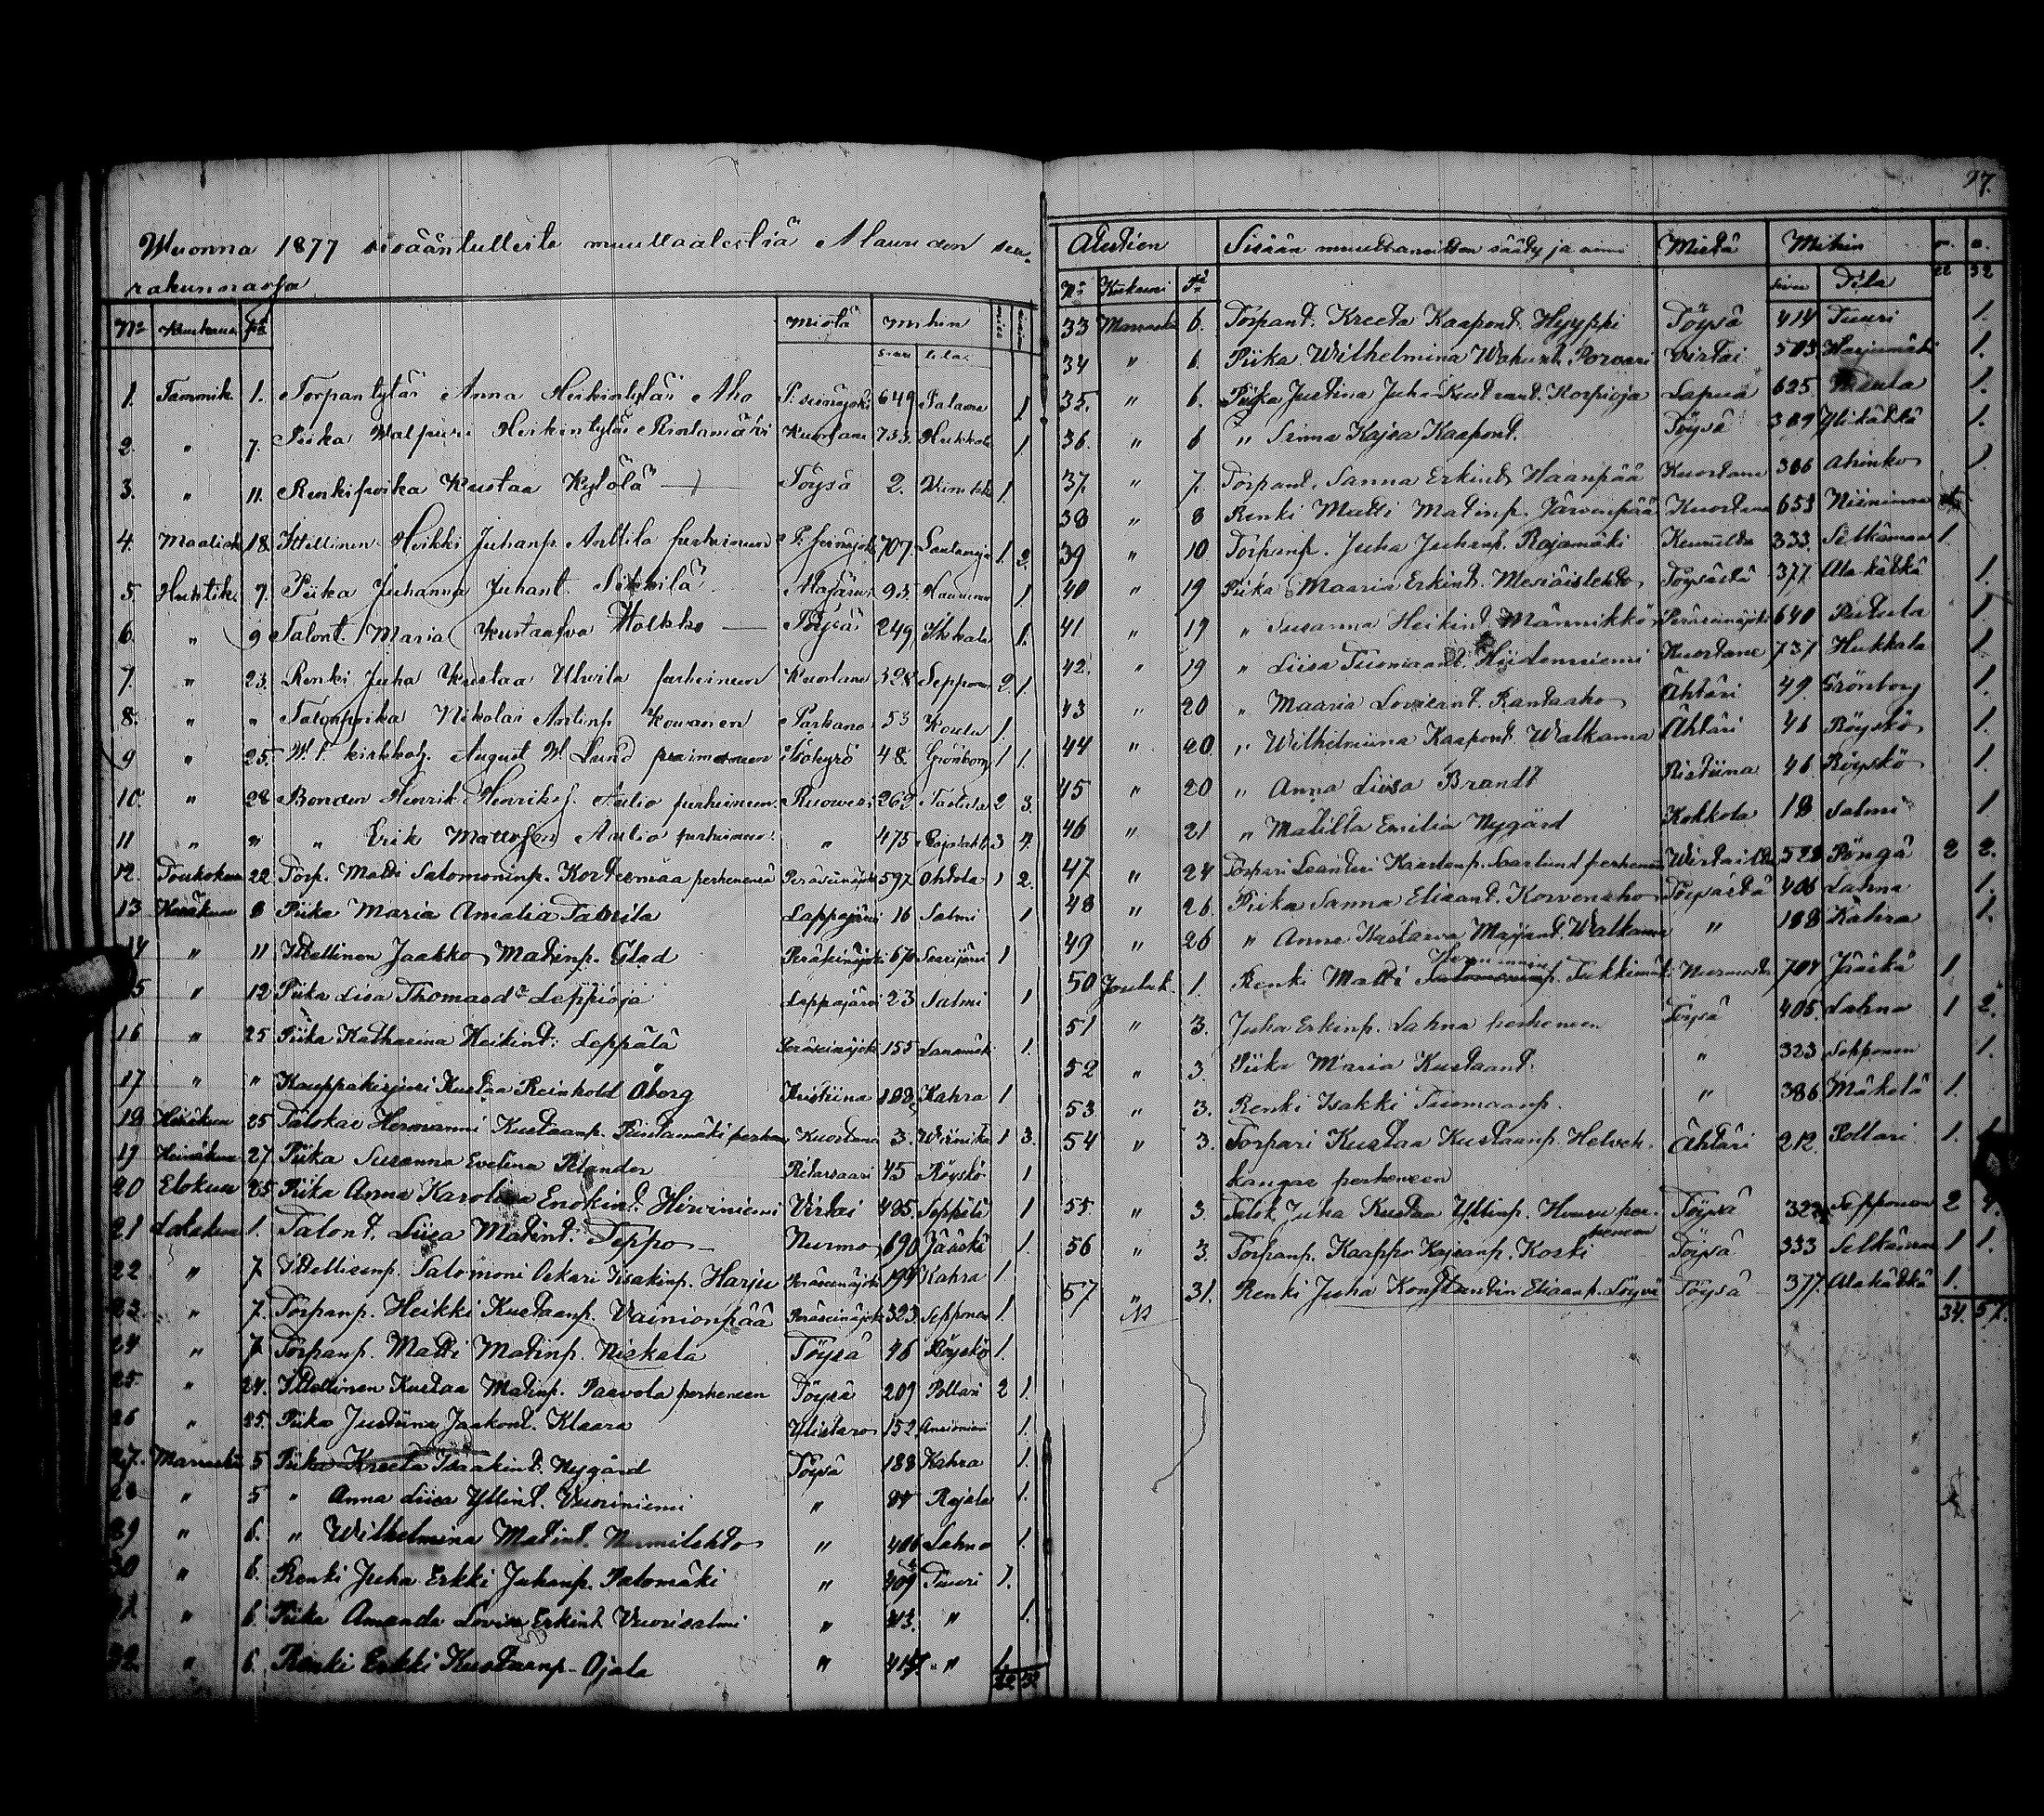 Wuonna 1877 sisääntulleita muualta Alavuden seu.
rakunnassa
No Kuukausi pä Mistä Mihin
sivu tila
1. Tammik. 1. Torpantytär Anna Heikintytär Aho P. seinäjoki 649 1
2. " 7. Piika Walpuri Heikintytär Kuortane 733 Hukkala 1
3. " 11. Renkipoika Kustaa Kytölä Töysä 2. 1.
4. Maalisk. 18. Ittellinen Heikki Juhanp. Anttila perheineen P. seinäjoki 707 1 2.
5. Huhtik. 7. Piika Juhanna Juhant. Alajärvi 93. 1.
6. " 9 Talont. Maria Kustaafva Holkko Töysä 249 1.
7. " 23. Renki Juha Kustaa Ulvila perheineen Kuortane 328 Sepponen 2 1.
8. " " Talonpoika Nikolai Antinp. Kowanen Parkano 53 1.
9 " 25. W. t. kirkkoh. August W. Lund perheineen Isokyrö 48. Grönborg 1 1.
10. " 28 Bonden Henrik Henriks. Aulio perheineen Ruowesi 262 2 3.
11 " " " Erik Mattsson Aulio perheineen " 475 3 4.
12. Toukokuu 22. Torp. Matti Salomoninp. Kortesmäa perheinensä Peräseinäjoki 597 Ohtola 1 2.
13 Kesäkuu 8 Piika Maria Amalia Lappajärvi 16 Salmi 1
14 " 11 Ittellinen Jaakko Matinp. Glad Peräseinäjoki 670 Saarijärvi 1
15 " 12 Piika Lisa Thomasd:r Leppioja Lappajärvi 23 Salmi 1
16 " 25 Piika Katharina Heikint. Leppälä Peräseinäjoki 155 1.
17 " " Kauppakirjuri Kustaa Reinhold Öberg Kristiina 188 Kahra 1
18 Heinäkuu 25 Talokas Hermanni Kustaanp. Pintamäki perhen Kuortane 3. 1 3.
19 Heinäkuu 27 Piika Susanna Evelina Pietarsaari 45 Röyskö 1
20 Elokuu 25 Piika Anna Karolina Enokint. Hirviniemi Virtai 485 Seppälä 1
21 Lokakuu 1. Talont. Liisa Matint. Teppo Nurmo 690 Jääskä 1.
22 " 7 Ittellisenp. Salomoni Oskari Iisakinp. Harju Peräseinäjoki 199 Kahra 1.
23. " 7. Torpanp. Heikki Kustaanp. Vainionpää Peräseinäjoki 323. Sepponen 1.
24 " 7. Torpanp. Matti Matinp. Niskala Töysä 46 Röyskö 1.
25. " 24. Ittellinen Kustaa Matinp. Paavola perheneen Töysä 209 Pollari 2 1.
26 " 25. Piika Justiina Jaakont. Klaara Ylistaro 152. 1.
27. Marrask. 5 Piika Kreeta Isaakint. Nygård Töysä 188 Kahra 1.
28 " 5 " Anna Liisa Yllint. Vuoriniemi " 84 Rajala 1.
29 " 6. " Wilhelmina Matint. Nurmilehto " 406 Lahna 1.
30 " 6. Renki Juha Erkki Juhanp. Salomäki " 409 Tuuri 1.
31 " 6. Piika Amanda Lovisa Erkint Vuorisalmi " 413. " 1.
32. " 6. Renki Erkki Kustaanp. Ojala " 414 " 1.
22 32
97.
Atution Sisään muuttaneitten sääty ja nimi Mistä Mihin m. n.
No Kuukausi Pä sivu Tila 22 32
33 Marrask. 6. Torpant. Kreeta Kaapont. Hyyppi Töysä 414 Tuuri 1.
34 " 6. Piika Wilhelmina Porvari Virtai 503 Harjumäki 1.
35. " 6. Piika Justina Juha Kustaant. Korpioja Lapua 625 1.
36. " 6 " Sanna Kajsa Kaapont. Töysä 389 Ylikätkä 1.
37. " 7. Torpant. Sanna Erkint. Haanpää Kuortane 386 1.
38 " 8 Renki Matti Matinp. Järvenpää Kuortane 653 Niinimaa
39 " 10 Torpanp. Juha Juhanp. Rajamäki Keuruulta 333. 1.
40 " 19 Piika Maaria Erkint. Mesiäislehto Töysästä 377 Ala-kätkä 1.
41 " 19 " Susanna Heikint. Männikkö Peräseinäjoki 640 1.
42. " 19 " Liisa Tuomaant. Hiidenniemi Kuortane 737 Hukkala 1.
43 " 20 " Maaria Loviisant. Rantaaho Ähtäri 49. Grönborg 1.
44 " 20 " Wilhelmiina Kaapont. Walkama Ähtäri 46 Röyskö 1.
45 " 20 " Anna Liisa Brandt Ristiina 46 Röyskö 1.
46 " 21 " Matilla Emilia Nygård Kokkola 18 Salmi 1.
47 " 24 Torpari Leanteri Kaarlenp. Saarlund perheneen Wirtailta 528 Pöngä 2 2.
48 " 26. Piika Sanna Eliaant. Korvenaho Töysästä 406 Lahna 1.
49 " 26 " Anna Kustaava Maijant. Walkama " 188 Kahra 1.
Hermannin
50 Jouluk. 1. Renki Matti Salomoninp. Tukkimäki Nurmosta 704 Jääskä 1
51 " 3. Juha Erkinp. Lahna perheneen Töysä 405. Lahna 1 2.
52 " 3. Piika Maria Kustaant. " 323 Sepponen 1.
53 " 3. Renki Isakki Tuomaanp. " 386 Mäkelä 1.
54 " 3. Torpari Kustaa Kustaanp. Helveh- Ähtäri 212. Pollari 1. 1.
kangas perheneen
55. " 3. Talok. Juha Kustaa Yllinp. Huusu per- Töysä 322 Sepponen 2 4.
heneen
56 " 3. Torpanp. Kaappo Kajsanp. Koski Töysä 333 1 1.
57 " 31. Renki Juha Konstantin Eliaanp. Löyvä Töysä 377. Alakätkä 1.
34. 57.